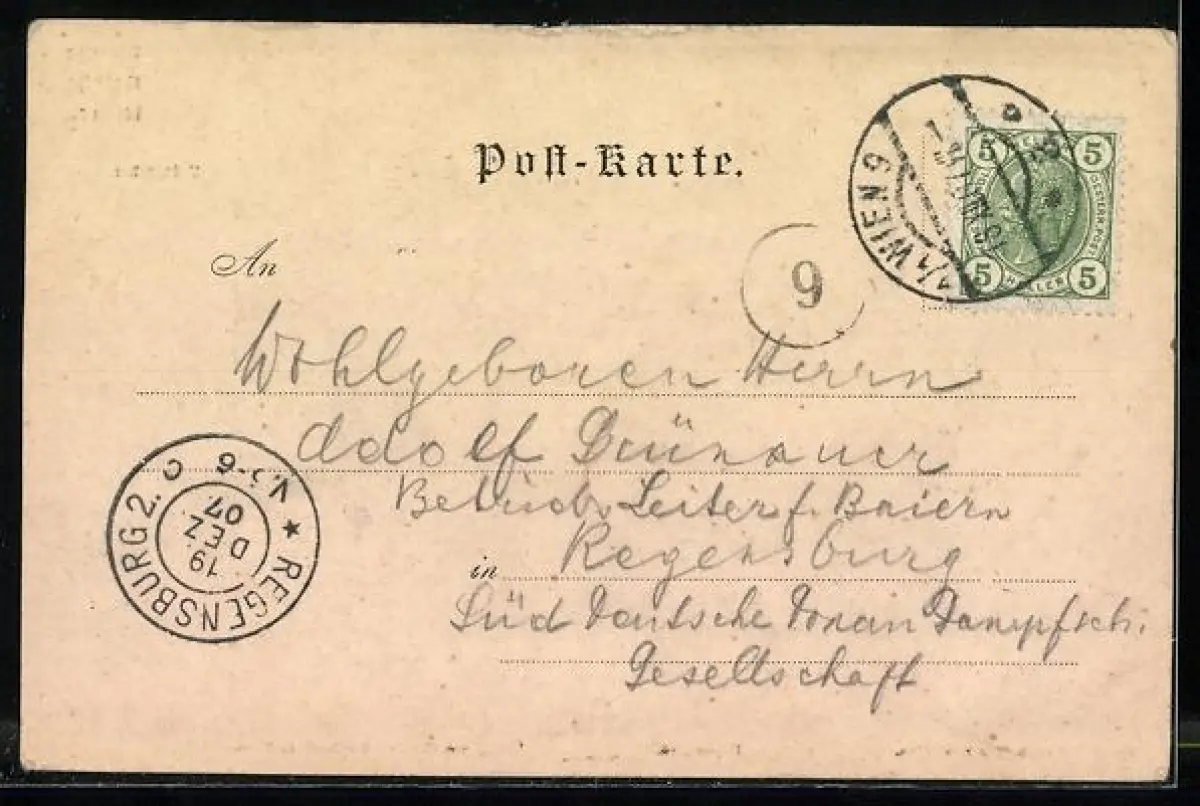 Post-Karte.
WIEN 9
5 5
5 5
HELLER
9
An
Wohlgeboren Herrn
Adolf Grünauer
Betriebs Leiter f. Baiern
in Regensburg
Süd Deutsche Donau Dampfsch.
Gesellschaft
REGENSBURG 2.
19
DEZ.
07
V.5-6